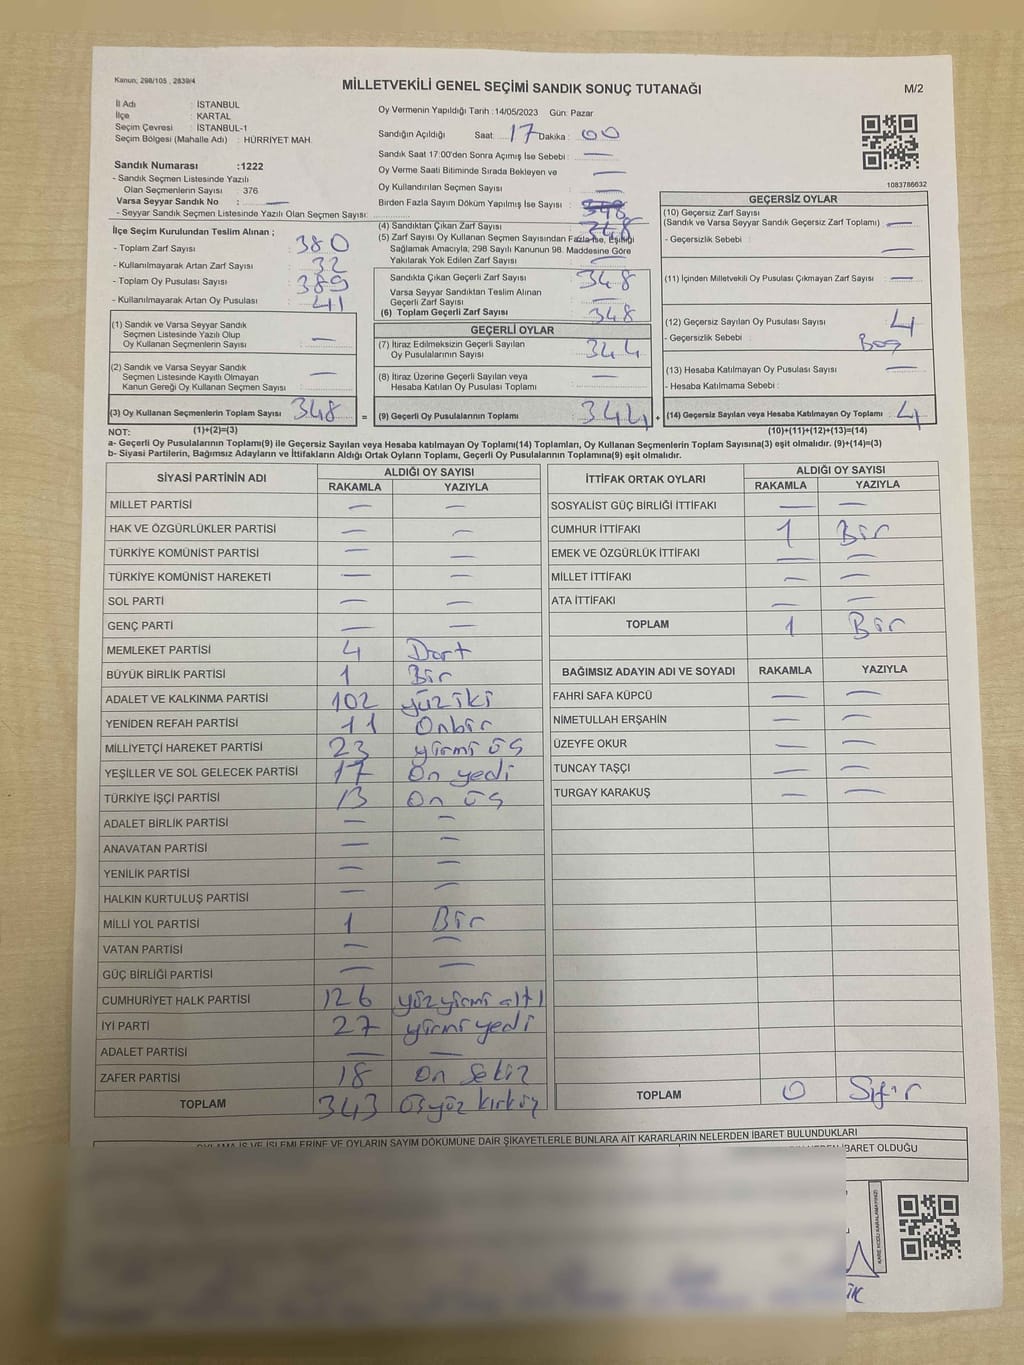 Kanun; 298/105 , 2839/4
MİLLETVEKİLİ GENEL SEÇİMİ SANDIK SONUÇ TUTANAĞI
M/2
İl Adı : İSTANBUL
İlçe : KARTAL
Seçim Çevresi : İSTANBUL-1
Seçim Bölgesi (Mahalle Adı) : HÜRRİYET MAH.
Sandık Numarası :1222
- Sandık Seçmen Listesinde Yazılı
Olan Seçmenlerin Sayısı : 376
Varsa Seyyar Sandık No : —
- Seyyar Sandık Seçmen Listesinde Yazılı Olan Seçmen Sayısı:
Oy Vermenin Yapıldığı Tarih :14/05/2023 Gün: Pazar
Sandığın Açıldığı Saat: 17 Dakika : 00
Sandık Saat 17:00'den Sonra Açımış İse Sebebi : —
Oy Verme Saati Bitiminde Sırada Bekleyen ve
Oy Kullandırılan Seçmen Sayısı —
Birden Fazla Sayım Döküm Yapılmış İse Sayısı :
1083786632
İlçe Seçim Kurulundan Teslim Alınan ;
- Toplam Zarf Sayısı : 380
- Kullanılmayarak Artan Zarf Sayısı : 32
- Toplam Oy Pusulası Sayısı : 389
- Kullanılmayarak Artan Oy Pusulası : 41
(1) Sandık ve Varsa Seyyar Sandık
Seçmen Listesinde Yazılı Olup
Oy Kullanan Seçmenlerin Sayısı : —
(2) Sandık ve Varsa Seyyar Sandık
Seçmen Listesinde Kayıtlı Olmayan
Kanun Gereği Oy Kullanan Seçmen Sayısı : —
(3) Oy Kullanan Seçmenlerin Toplam Sayısı 348 =
(1)+(2)=(3)
(4) Sandıktan Çıkan Zarf Sayısı : 348
(5) Zarf Sayısı Oy Kullanan Seçmen Sayısından Fazla İse, Eşitliği
Sağlamak Amacıyla, 298 Sayılı Kanunun 98. Maddesine Göre
Yakılarak Yok Edilen Zarf Sayısı : —
Sandıkta Çıkan Geçerli Zarf Sayısı : 348
Varsa Seyyar Sandıktan Teslim Alınan
Geçerli Zarf Sayısı : —
(6) Toplam Geçerli Zarf Sayısı : 348
GEÇERLİ OYLAR
(7) İtiraz Edilmeksizin Geçerli Sayılan
Oy Pusulalarının Sayısı : 344
(8) İtiraz Üzerine Geçerli Sayılan veya
Hesaba Katılan Oy Pusulası Toplamı : —
(9) Geçerli Oy Pusulalarının Toplamı : 344 +
GEÇERSİZ OYLAR
(10) Geçersiz Zarf Sayısı
(Sandık ve Varsa Seyyar Sandık Geçersiz Zarf Toplamı) : —
- Geçersizlik Sebebi : —
(11) İçinden Milletvekili Oy Pusulası Çıkmayan Zarf Sayısı : —
(12) Geçersiz Sayılan Oy Pusulası Sayısı : 4
- Geçersizlik Sebebi : Boş
(13) Hesaba Katılmayan Oy Pusulası Sayısı : —
- Hesaba Katılmama Sebebi :
(14) Geçersiz Sayılan veya Hesaba Katılmayan Oy Toplamı : 4
(10)+(11)+(12)+(13)=(14)
NOT:
a- Geçerli Oy Pusulalarının Toplamı(9) ile Geçersiz Sayılan veya Hesaba katılmayan Oy Toplamı(14) Toplamları, Oy Kullanan Seçmenlerin Toplam Sayısına(3) eşit olmalıdır. (9)+(14)=(3)
b- Siyasi Partilerin, Bağımsız Adayların ve İttifakların Aldığı Ortak Oyların Toplamı, Geçerli Oy Pusulalarının Toplamına(9) eşit olmalıdır.
SİYASİ PARTİNİN ADI ALDIĞI OY SAYISI
RAKAMLA YAZIYLA
MİLLET PARTİSİ — —
HAK VE ÖZGÜRLÜKLER PARTİSİ — —
TÜRKİYE KOMÜNİST PARTİSİ — —
TÜRKİYE KOMÜNİST HAREKETİ — —
SOL PARTİ — —
GENÇ PARTİ — —
MEMLEKET PARTİSİ 4 Dört
BÜYÜK BİRLİK PARTİSİ 1 Bir
ADALET VE KALKINMA PARTİSİ 102 yüz iki
YENİDEN REFAH PARTİSİ 11 Onbir
MİLLİYETÇİ HAREKET PARTİSİ 23 yirmi üç
YEŞİLLER VE SOL GELECEK PARTİSİ 17 On yedi
TÜRKİYE İŞÇİ PARTİSİ 13 On üç
ADALET BİRLİK PARTİSİ — —
ANAVATAN PARTİSİ — —
YENİLİK PARTİSİ — —
HALKIN KURTULUŞ PARTİSİ — —
MİLLİ YOL PARTİSİ 1 Bir
VATAN PARTİSİ — —
GÜÇ BİRLİĞİ PARTİSİ — —
CUMHURİYET HALK PARTİSİ 126 yüz yirmi altı
İYİ PARTİ 27 yirmi yedi
ADALET PARTİSİ — —
ZAFER PARTİSİ 18 On Sekiz
TOPLAM 343 üçyüz kırküç
İTTİFAK ORTAK OYLARI ALDIĞI OY SAYISI
RAKAMLA YAZIYLA
SOSYALİST GÜÇ BİRLİĞİ İTTİFAKI — —
CUMHUR İTTİFAKI 1 Bir
EMEK VE ÖZGÜRLÜK İTTİFAKI — —
MİLLET İTTİFAKI — —
ATA İTTİFAKI — —
TOPLAM 1 Bir
BAĞIMSIZ ADAYIN ADI VE SOYADI RAKAMLA YAZIYLA
FAHRİ SAFA KÜPCÜ — —
NİMETULLAH ERŞAHİN — —
ÜZEYFE OKUR — —
TUNCAY TAŞÇI — —
TURGAY KARAKUŞ — —
TOPLAM 0 Sıfır
OYLAMA İŞ VE İŞLEMLERİNE VE OYLARIN SAYIM DÖKÜMÜNE DAİR ŞİKAYETLERLE BUNLARA AİT KARARLARIN NELERDEN İBARET BULUNDUKLARI
İBARET OLDUĞU
KARE KODU KARALAMAYINIZ!